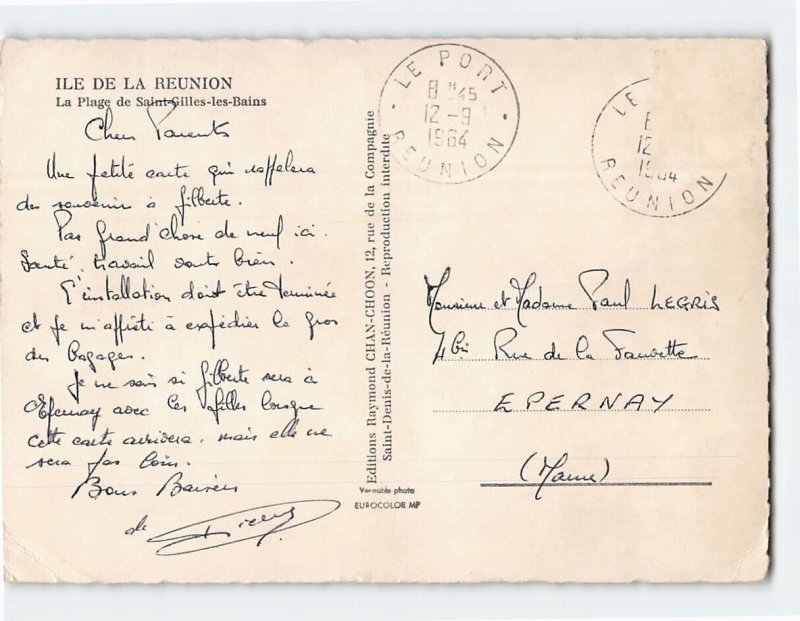 ILE DE LA REUNION
La Plage de Saint-Gilles-les-Bains
Chers Parents
Une petite carte qui rappelera
des souvenirs à Gilberte.
Pas grand chose de neuf ici.
Santé, travail vont bien.
L'installation doit être terminée
et je m'apprête à expédier le gros
des bagages.
Je ne sais si Gilberte sera à
Epernay avec les filles lorsque
cette carte arrivera, mais elle ne
sera pas loin.
Bons Baisers
de
Editions Raymond CHAN-CHOON, 12, rue de la Compagnie
Saint-Denis-de-la-Réunion - Reproduction interdite
Véritable photo
EUROCOLOR MP
LE PORT
8 H45
12-9
1964
REUNION
LE
12
1964
REUNION
Monsieur et Madame Paul LEGRIS
4 bis Rue de la Fauvette
EPERNAY
(Marne)